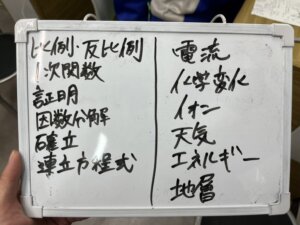 比例・反比例
1次関数
証明
因数分解
確立
連立方程式
電流
化学変化
イオン
天気
エネルギー
地層